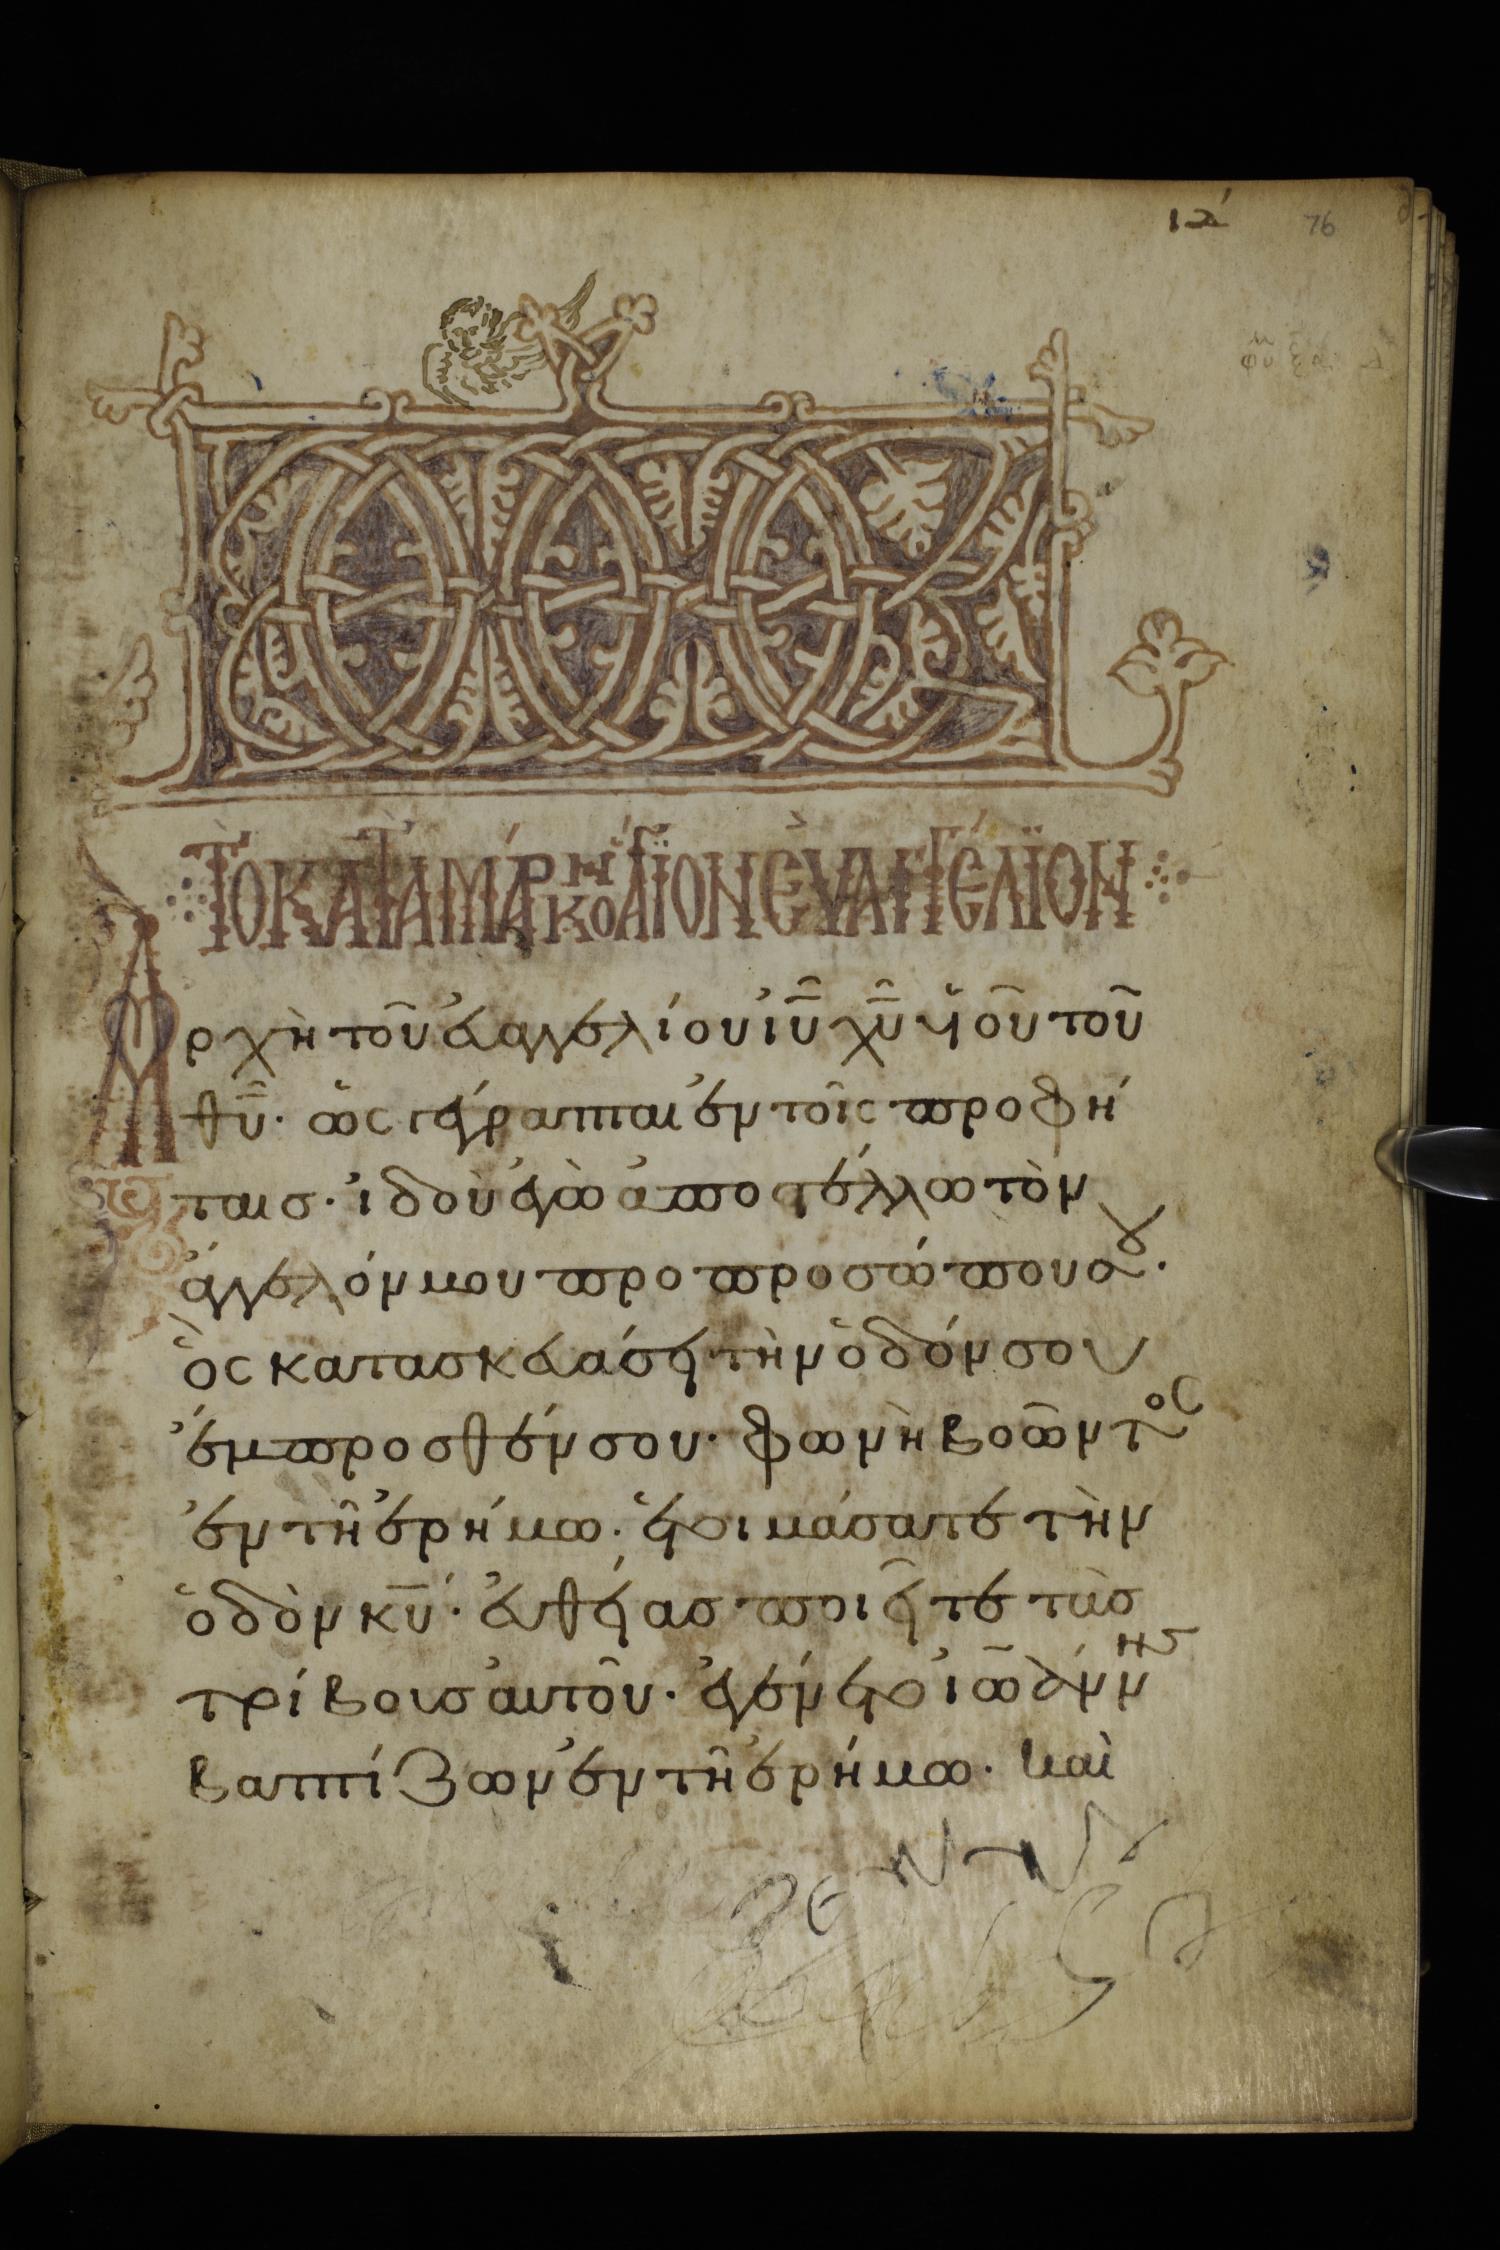 ια΄ 76
ΤῸ ΚΑΤᾺ ΜΆΡΚΟΝ ἍΓΙΟΝ ἘΥΑΓΓΈΛΙΟΝ
Ἀρχὴ τοῦ ἐυαγγελίου ἰῦ χῦ ὑοῦ τοῦ
θῦ· ὡς γέγραπται ἐν τοῖς προφή
ταισ· ἰδοὺ ἐγὼ ἀποστέλλω τὸν
ἄγγελόν μου προ προσώπου σου·
ὃς κατασκευάσει τὴν ὁδόν σου
ἔμπροσθέν σου· φωνὴ βοῶντος
ἐν τῆ ἐρήμω· ἑτοιμάσατε τὴν
ὁδὸν κῦ· ἐυθείασ ποιεῖτε τὰσ
τρίβουσ ἀυτοῦ· ἐγένετο ἰωάννησ
βαπτίζων ἐν τῆ ἐρήμω· καὶ